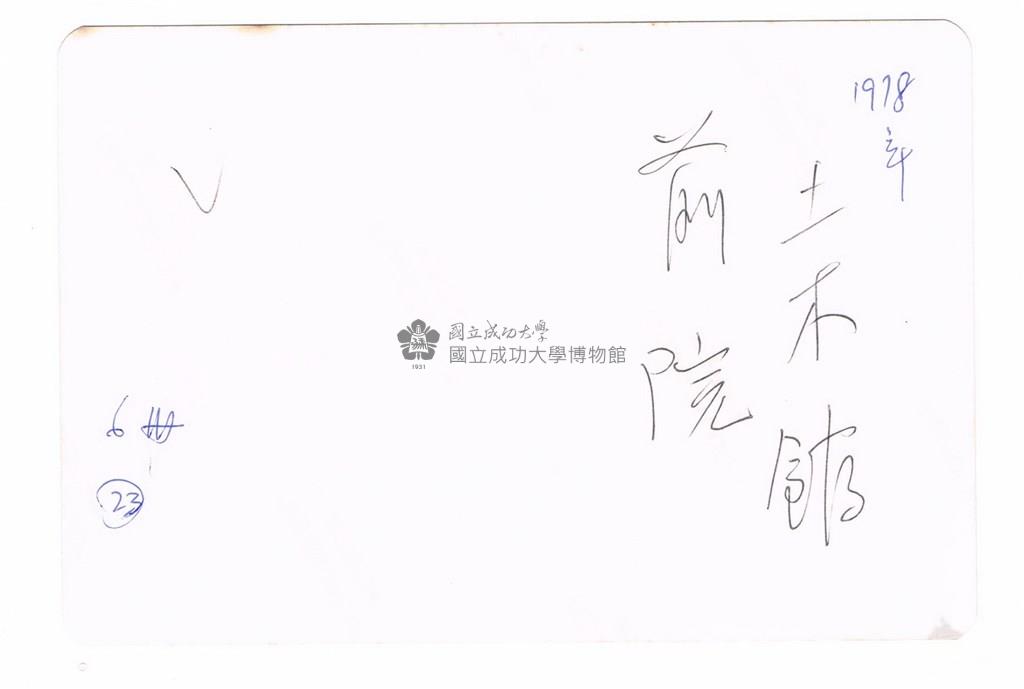 1978年
土木館
前院
6冊
23
國立成功大學
國立成功大學博物館
1931